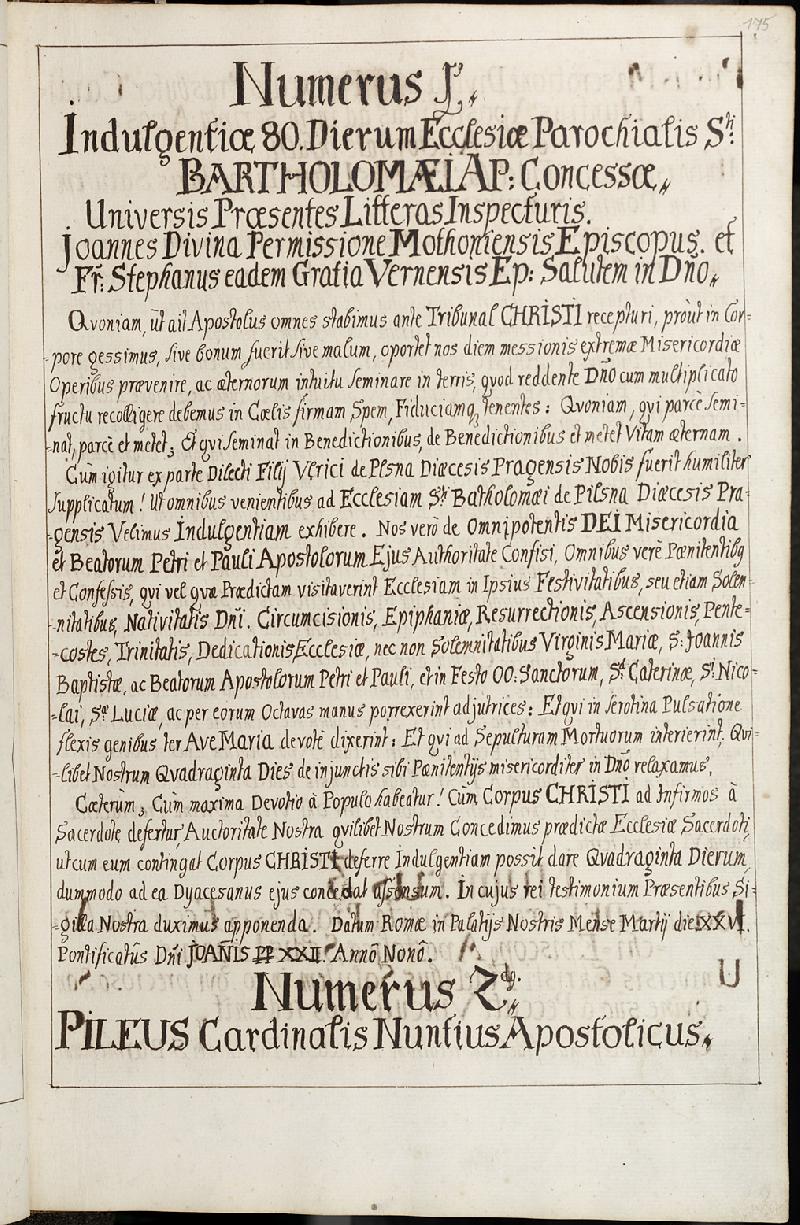 175
Numerus I.
Indulgentiæ 80. Dierum Ecclesiæ Parochialis Sti:
BARTHOLOMÆI AP: Concessæ,
Universis Præsentes Litteras Inspecturis.
Joannes Divina Permissione Mothoniensis Episcopus. et
Fr: Stephanus eadem Gratia Vernensis Ep: Salutem in Dño,
Qvoniam, ùt ait Apostolus omnes stabimus ante Tribunal CHRISTI recepturi, proùt in Cor=
=pore gessimus, sive bonum fuerit sive malum, oportet nos diem messionis extremæ Misericordiæ
Operibus prævenire, ac æternorum intuitu seminare in terris, qvod reddente Dño cum multiplicato
fructu recolligere debemus in Cœlis firmam Spem, Fiduciamq, tenentes: Qvoniam, qvi parcè semi=
=nat, parcè et metet, Et qvi seminat in Benedictionibus, de Benedictionibus et metet Vitam æternam.
Cùm igitur ex parte Dilecti Filij Vlrici de Plsna Diæcesis Pragensis Nobis fuerit humiliter
Supplicatum! Ut omnibus venientibus ad Ecclesiam Sti Bartholomæi de Pilsna Diæcesis Pra=
=gensis Velimus Indulgentiam exhibere. Nos verò de Omnipotentis DEI Misericordia
et Beatorum Petri et Pauli Apostolorum Ejus Authoritate Confisi, Omnibus verè Pœnitentibg
et Confessis, qvi vel qvæ Prædictam visitaverint Ecclesiam in Ipsius Festivitatibus, seu etiam Solen=
=nitatibus, Nativitatis Dñi, Circumcisionis, Epiphaniæ, Resurrectionis, Ascensionis, Pente=
=costes, Trinitatis, Dedicationis Ecclesiæ, nec non Solemnitatibus Virginis Mariæ, S: Joannis
Baptistæ, ac Beatorum Apostolorum Petri et Pauli, et in Festo OO: Sanctorum, Stæ Caterinæ, Sti Nico=
=lai, Stæ Luciæ, ac per eorum Octavas manus porrexerint adjutrices: Et qvi in serotina Pulsatione
flexis genibus ter Ave Maria devotè dixerint: Et qvi ad Sepulturam Mortuorum interierint, Qvi=
=libet Nostrum Qvadraginta Dies de injunctis sibi Pœnitentijs misericorditer in Dño relaxamus,
Cæterùm, Cùm maxima Devotio à Populo habeatur! Cùm Corpus CHRISTI ad Infirmos à
Sacerdote defertur, Auctoritate Nostra qvilibet Nostrum Concedimus prædictæ Ecclesiæ Sacerdoti,
ut cum eum contingat Corpus CHRISTI deferre Indulgentiam possit dare Qvadraginta Dierum,
dummodo ad ea Dyæcesanus ejus concedat assensum. In cujus rei testimonium Præsentibus Si=
=gilla Nostra duximus apponenda. Datum Romæ in Palatijs Nostris Mense Martij die XXVI.
Pontificatûs Dñi JOAÑIS PP XXII. Annô Nonô.
Numerus 2dg.
PILEUS Cardinalis Nuntius Apostolicus,